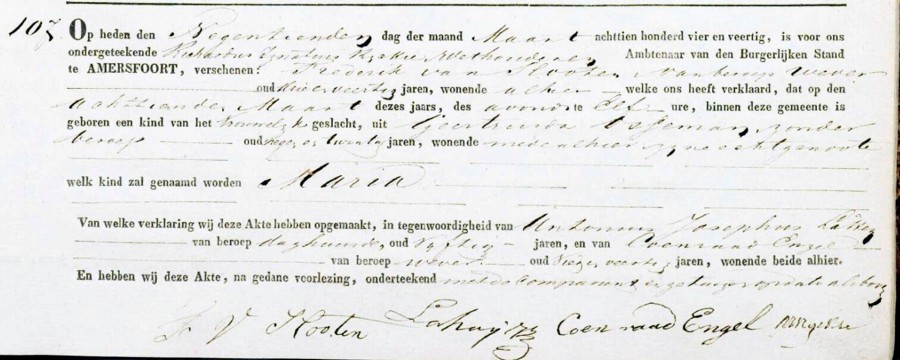 107
Op heden den Negentienden dag der maand Maart achttien honderd vier en veertig, is voor ons
ondergeteekende Richardus Ignatius Wethouder Ambtenaar van den Burgerlijken Stand
te AMERSFOORT, verschenen: Frederik van Kooten, van beroep wever
oud drie en veertig jaren, wonende alhier welke ons heeft verklaard, dat op den
achttiende Maart dezes jaars, des avonds te Elf ure, binnen deze gemeente is
geboren een kind van het Vrouwelijk geslacht, uit Geertruida zonder
beroep oud negen en twintig jaren, wonende mede alhier zijne echtgenoote
welk kind zal genaamd worden Maria
Van welke verklaring wij deze Akte hebben opgemaakt, in tegenwoordigheid van Antonius Josephus
van beroep daghuurder, oud vijftig jaren, en van Coenraad Engel
van beroep wever oud zeven en veertig jaren, wonende beide alhier.
En hebben wij deze Akte, na gedane voorlezing, onderteekend met de Comparant en getuigen op dato als boven
F V Kooten Coenraad Engel